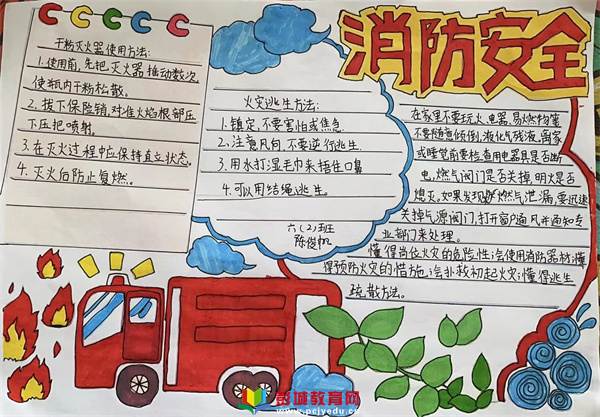 消防安全
干粉灭火器使用方法:
1.使用前,先把灭火器摇动数次
使瓶内干粉松散。
2.拔下保险销,对准火焰根部压
下压把喷射。
3.在灭火过程中应保持直立状态。
4.灭火后防止复燃。
火灾逃生方法:
1.镇定,不要害怕或焦急
2.注意风向,不要逆行逃生
3.用水打湿毛巾来捂住口鼻
4.可以用结绳逃生。
六(2)班
陈俊帆
在家里不要玩火,电器,易燃物等
不要随意倾倒,液化气残液,离家
或睡觉前要检查用电器具是否断
电,燃气阀门是否关掉,明火是否
熄灭。如果发现燃气泄漏,要迅速
关掉气源阀门,打开窗户通风并通知专
业部门来处理。
懂得岗位火灾的危险,性;会使用消防器材;懂
得预防火灾的措施,会扑救初起火灾;懂得逃生
疏散方法。
彭城教育网
www.pcjyedu.cn